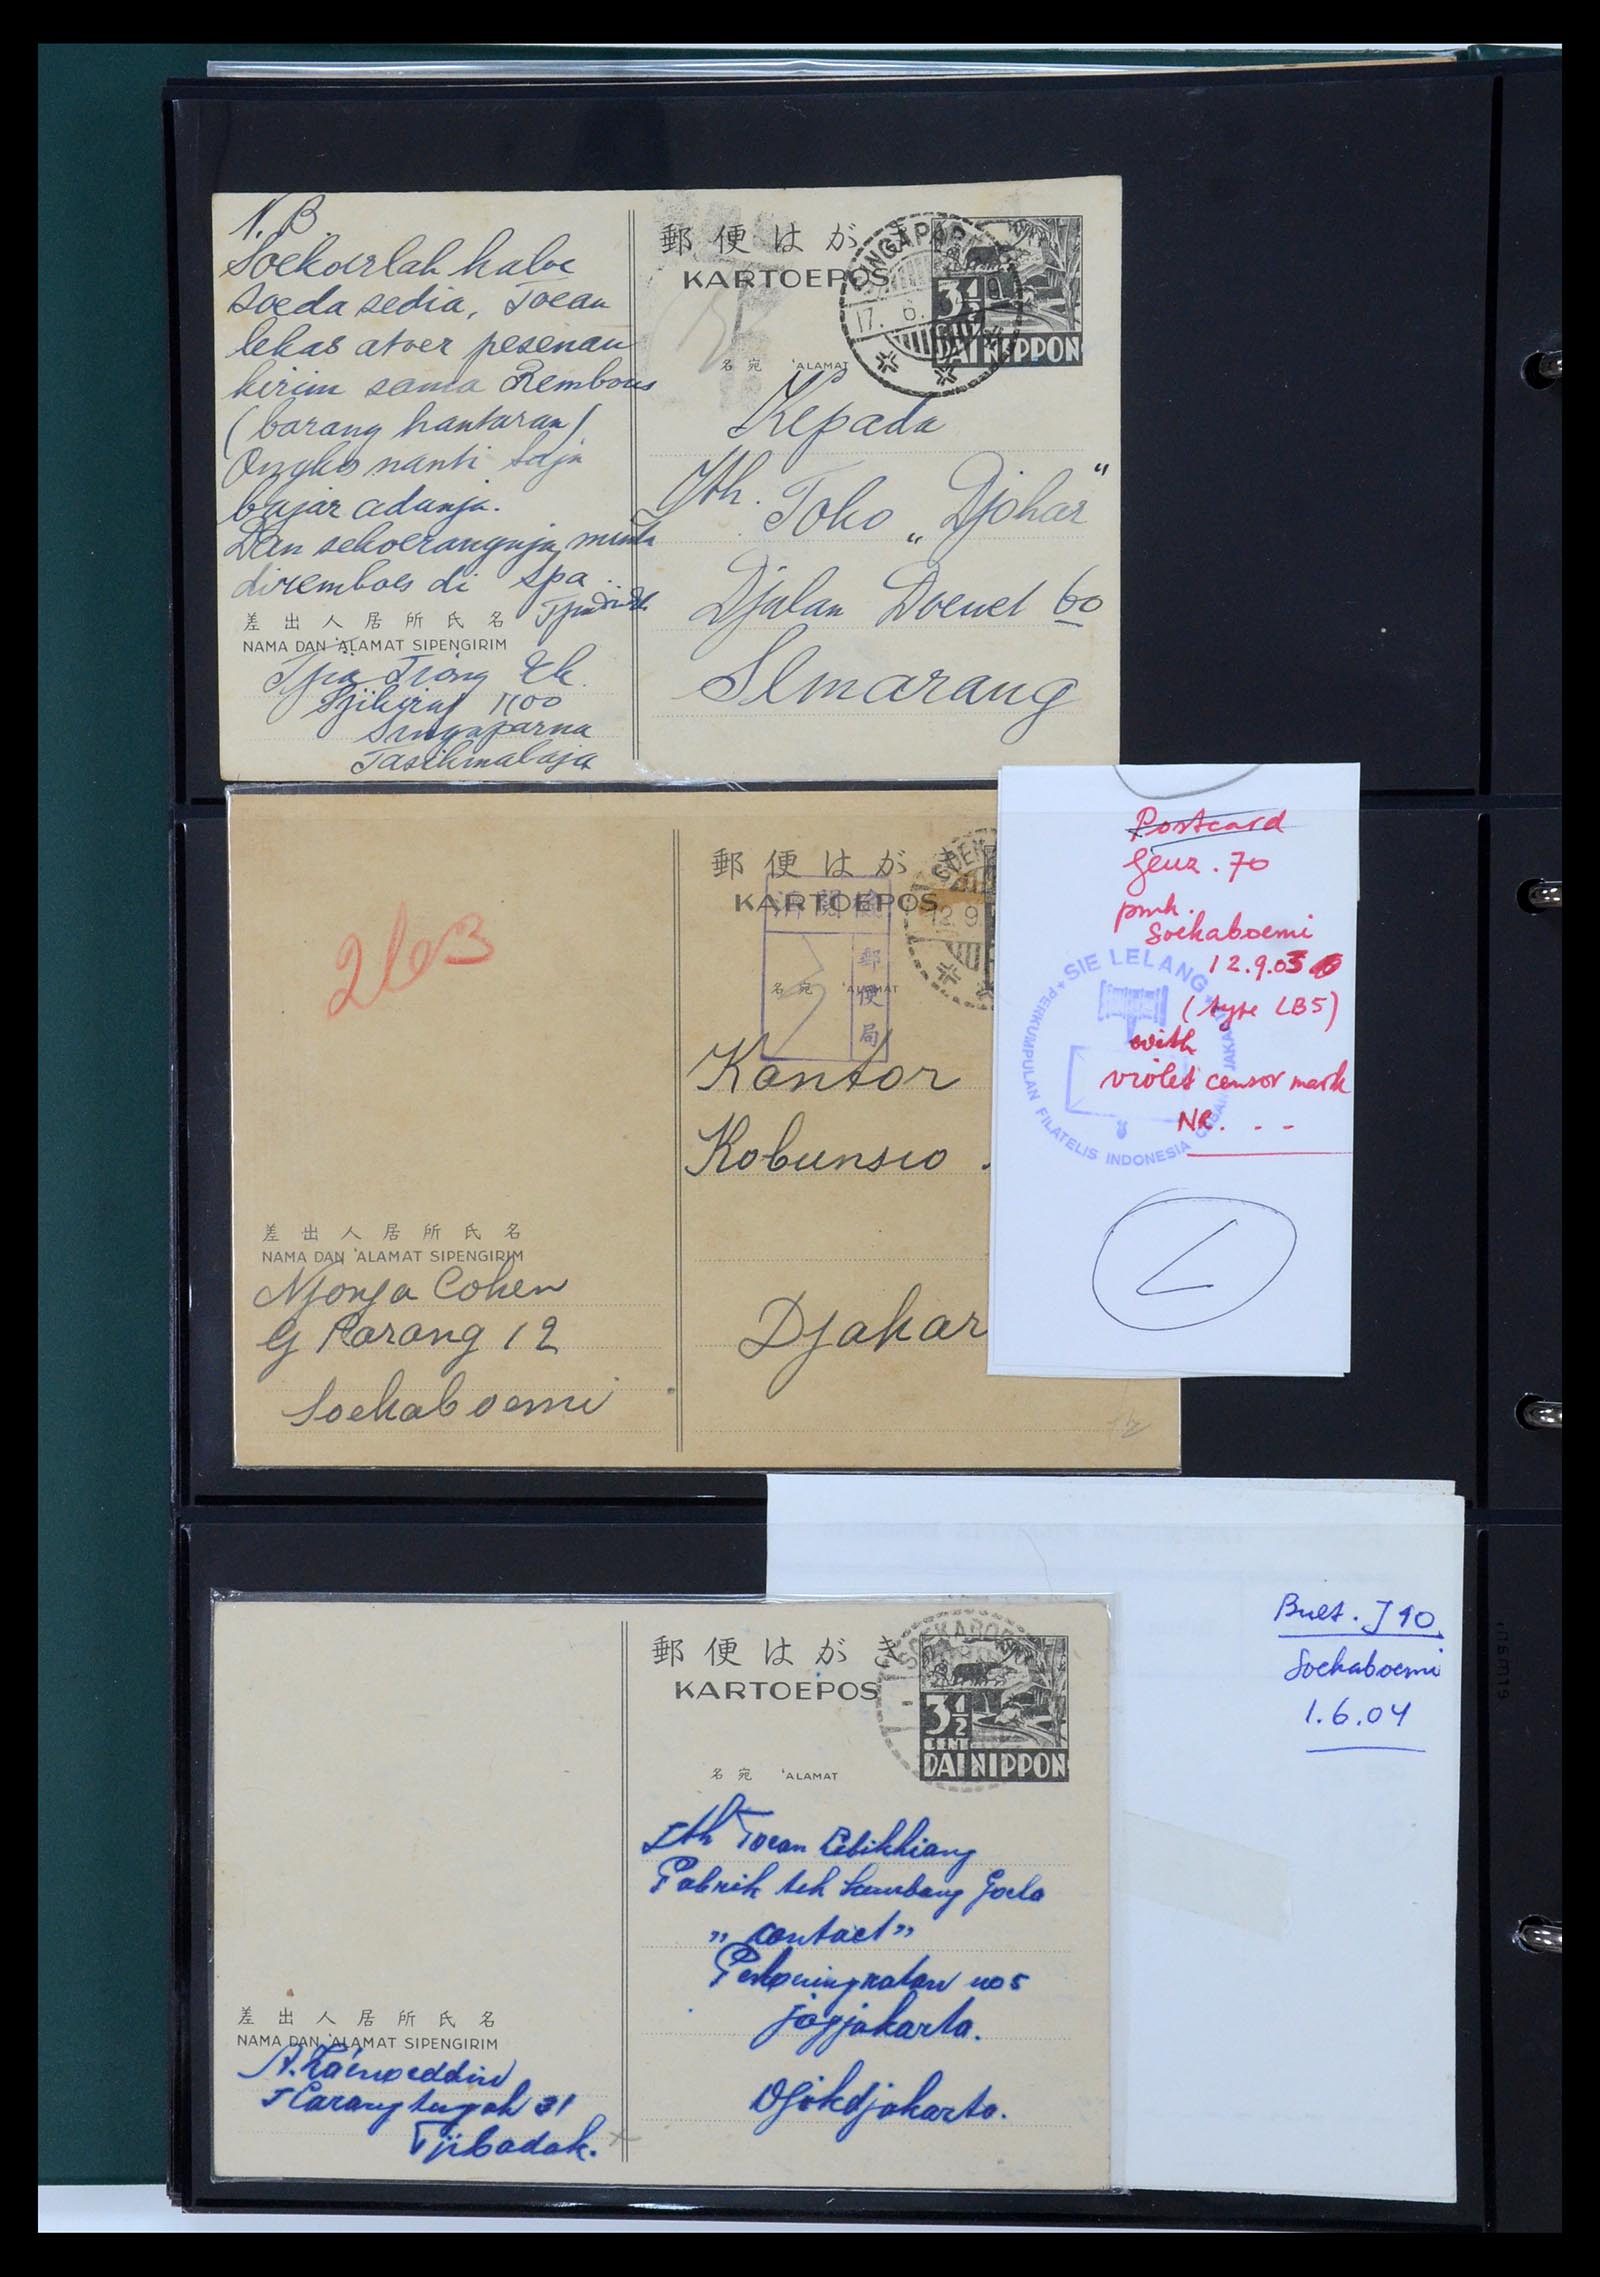 N.B.
Soekoerlah kaloe
soeda sedia, Toean
lekas atoer pesenan
kirim sama Rembours
(barang hantaran)
Ongkos nanti saja
bajar adanja.
Dan sekoerangnja, minta
diremboes di Spa..
差出人居所氏名
NAMA DAN 'ALAMAT SIPENGIRIM
Tjia Tiong Ek.
Tjikiraj 1100
Singaparna
Tasikmalaja
郵便はがき
KARTOEPOS
SINGAPAR
17. 6.
3½
DAI NIPPON
名宛 'ALAMAT
Kepada
Yth. Toko „Djohar"
Djalan Doewet 60
Semarang
郵便はが
KARTOEPOS
12 9
検閲済
郵便局
名宛 'ALAMAT
2603
Kantor
Kobunsio
Djakar
差出人居所氏名
NAMA DAN 'ALAMAT SIPENGIRIM
Njonja Cohen
Parang 12
Soekaboemi
Postcard
Geuz. 70
pmk.
Soekaboemi
12.9.03
(type LB5)
with
violet censor mark
NR. - -
* SIE LELANG *
PERKUMPULAN FILATELIS INDONESIA CABANG JAKARTA
郵便はがき
KARTOEPOS
SOEKABOE
3½
CENT
DAI NIPPON
名宛 'ALAMAT
Jth Toean
Pabrik teh kembang Goela
„ contact "
no 5
jogjakarta.
Djokdjakarta.
差出人居所氏名
NAMA DAN 'ALAMAT SIPENGIRIM
A. Za'inoeddin
Karangtengah 31
Tjibadak.
Bult. J 10.
Soekaboemi
1.6.04